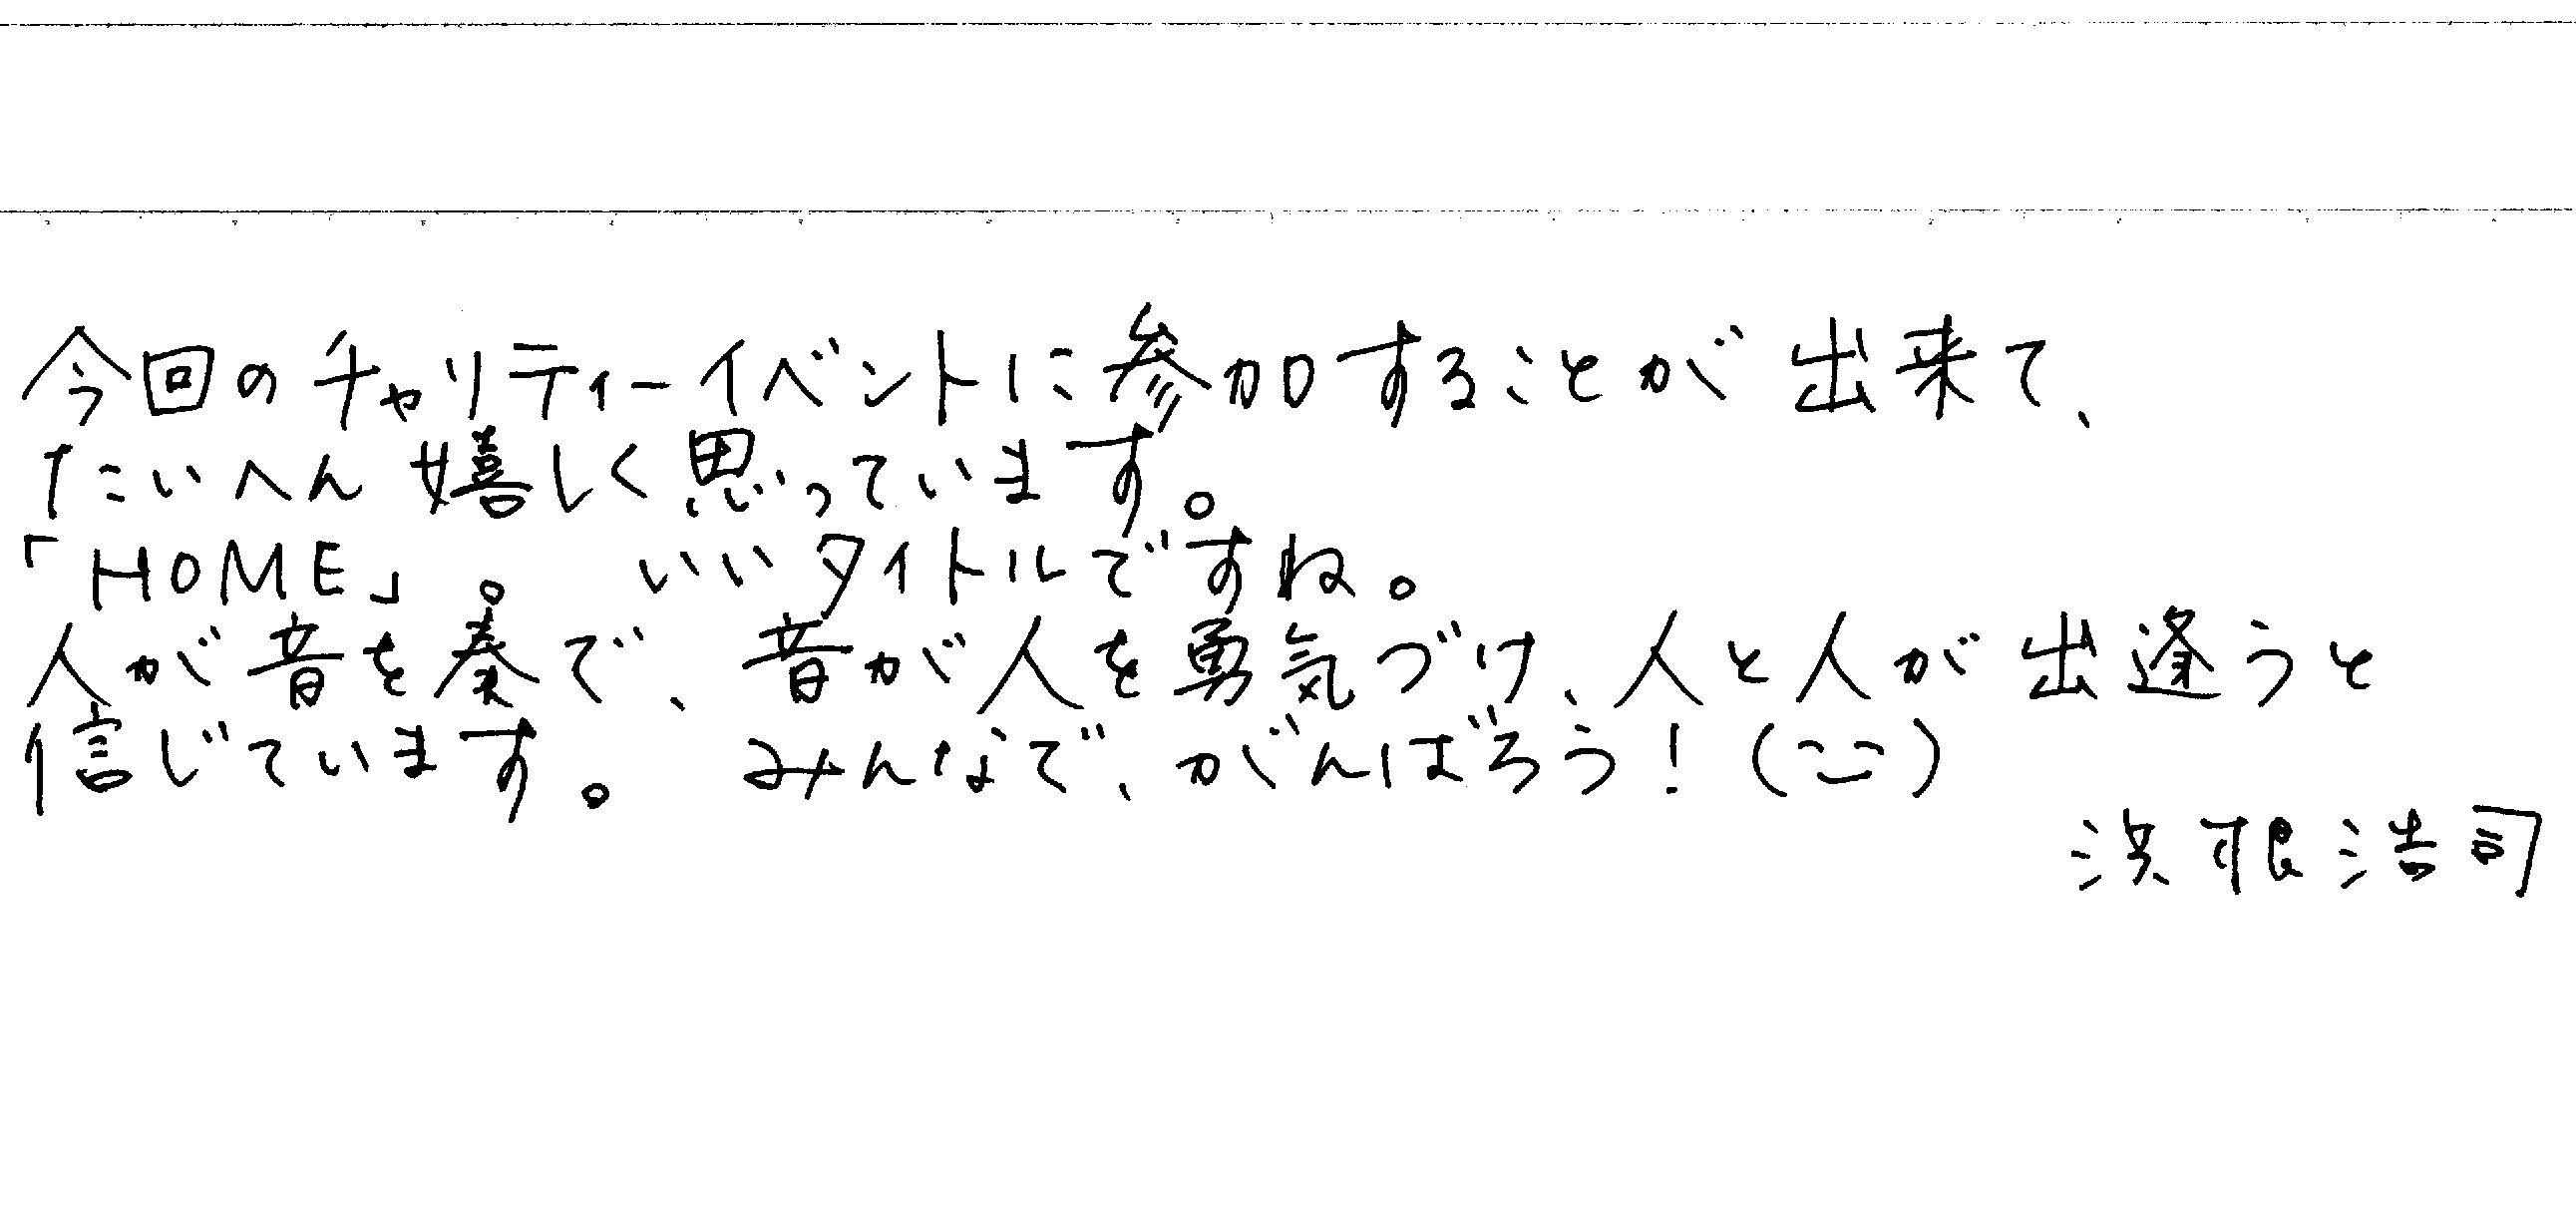 今回のチャリティーイベントに参加することが出来て、
たいへん嬉しく思っています。
「HOME」。 いいタイトルですね。
人が音を奏で、音が人を勇気づけ、人と人が出逢うと
信じています。 みんなで、がんばろう!(ニニ)
浜根浩司